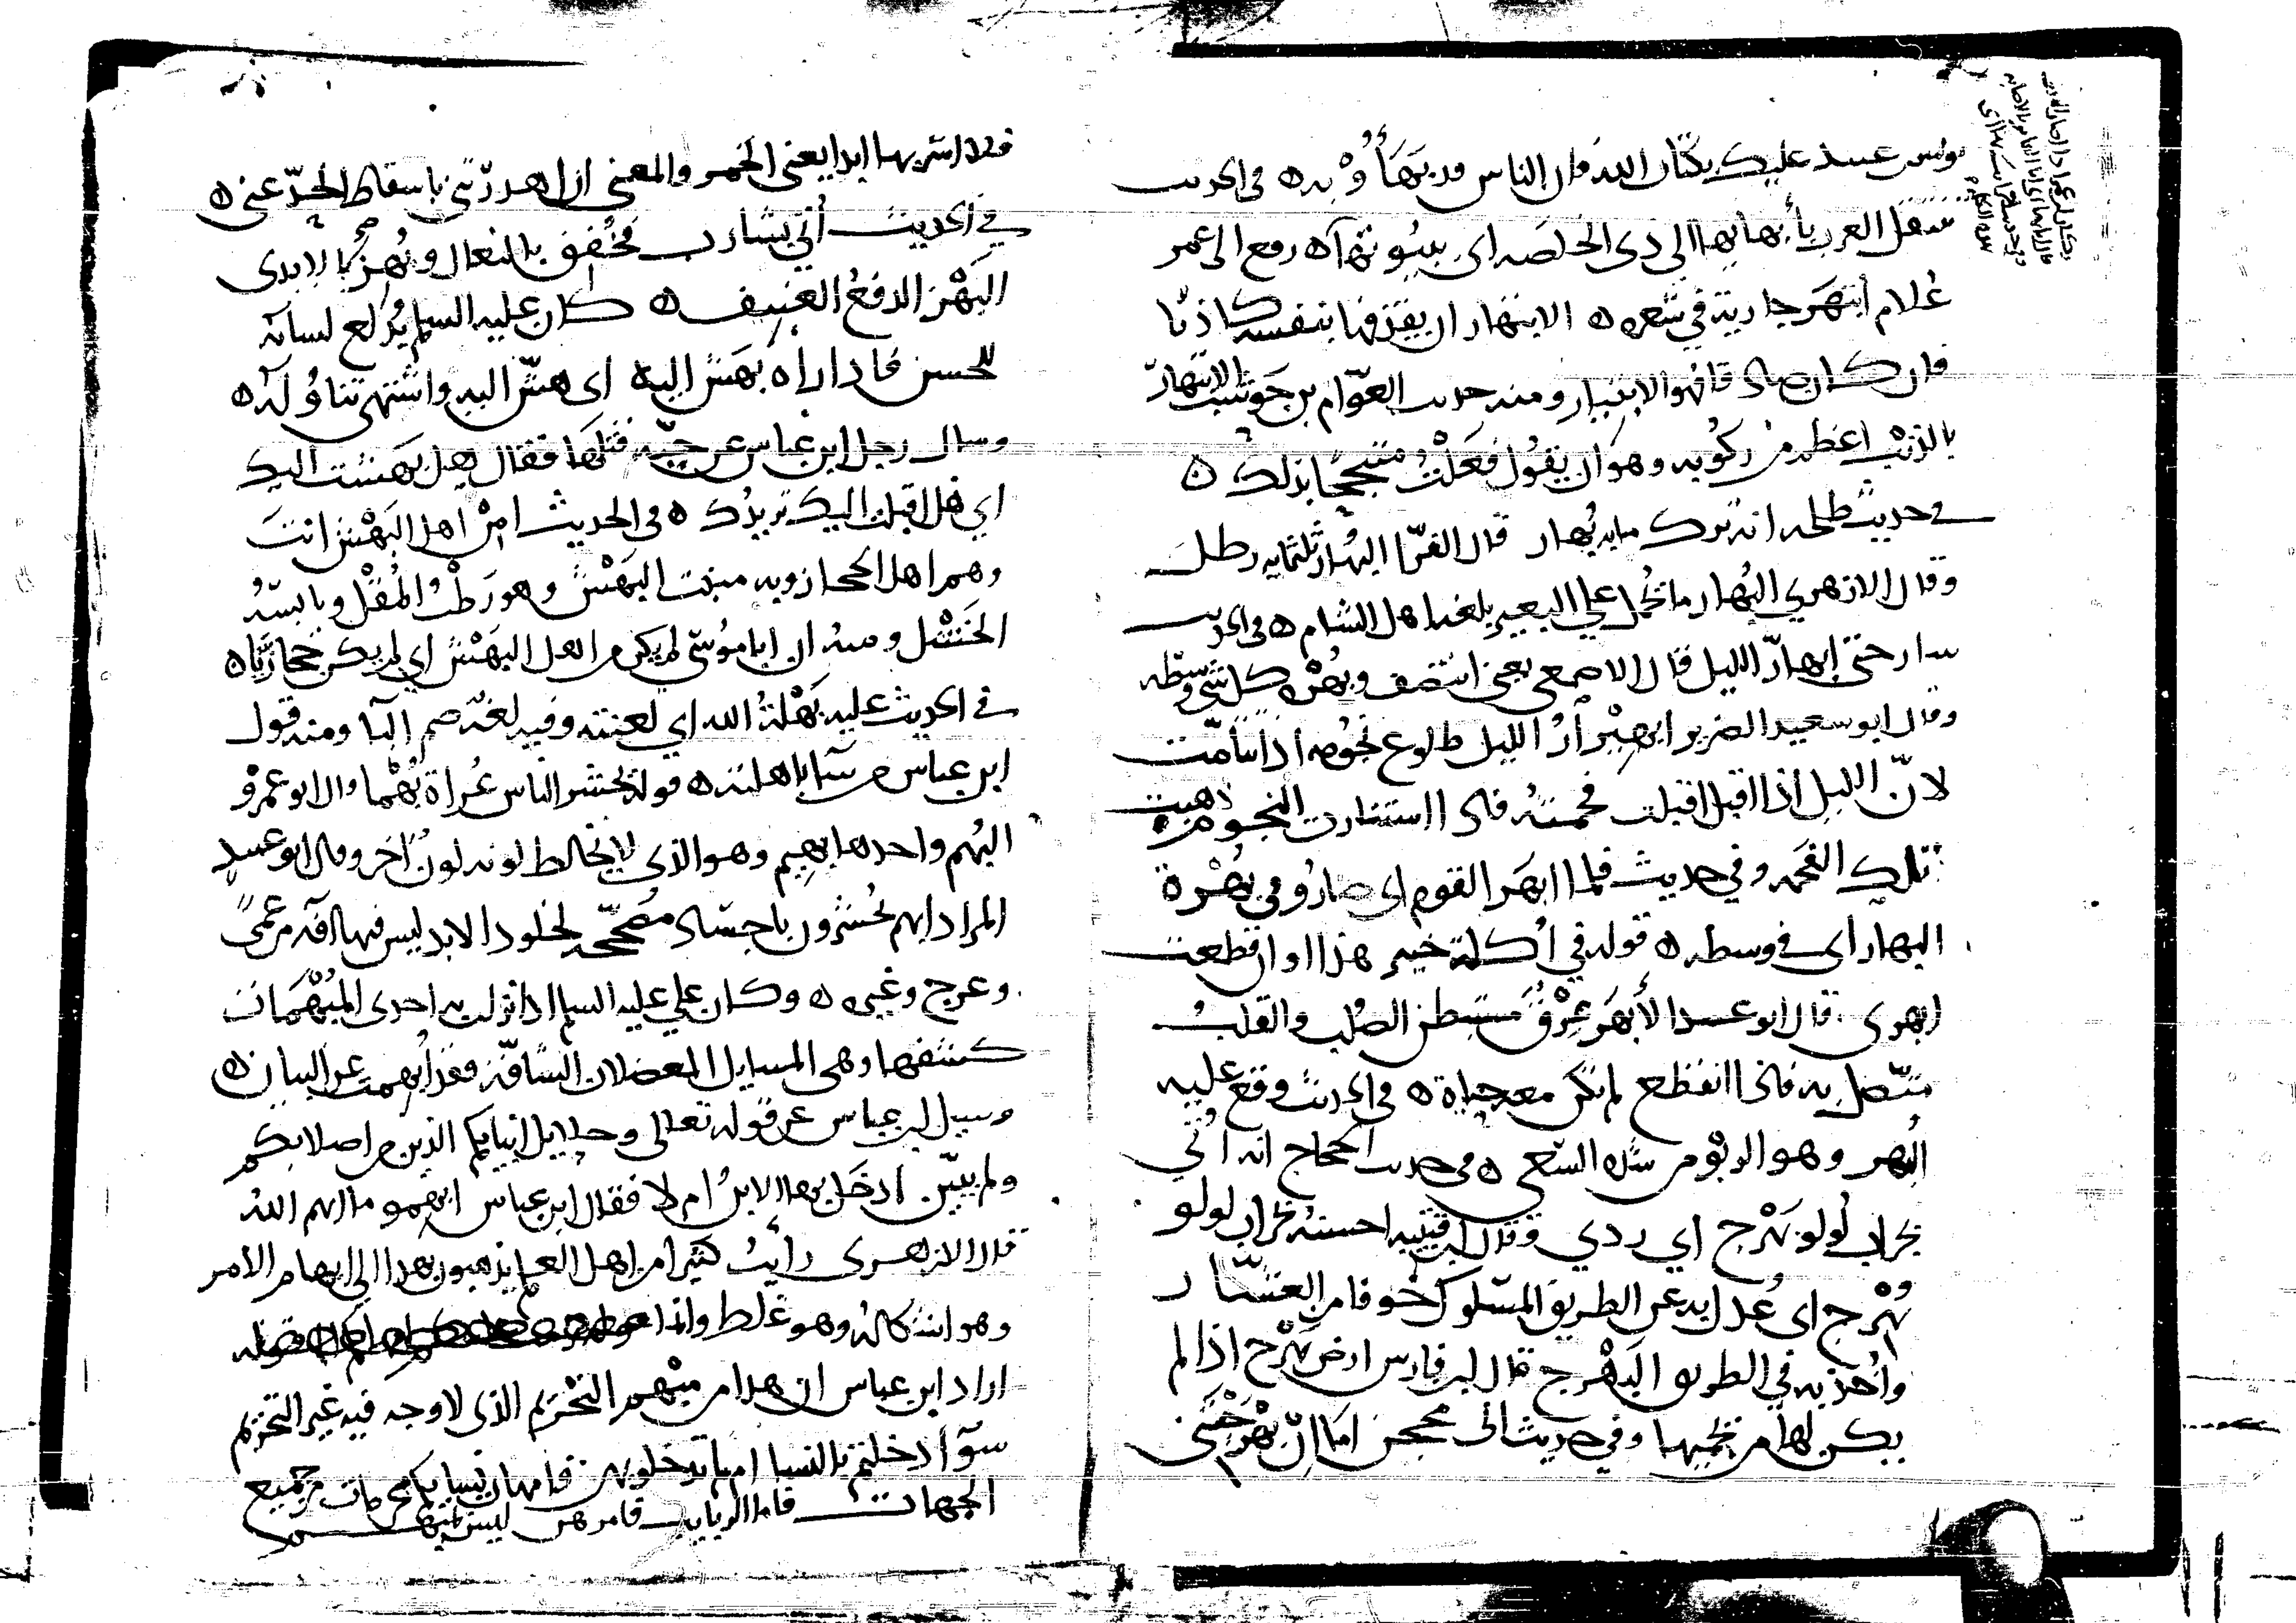 يونس بن عبيد عليك بكتاب الله فان الناس قد بَهَأُوْا به ٥ في الحديث
تنتقل العرب بأبهائها الى ذى الخلصه اى ببيوتها ٥ رفع الى عمر
غلام ابتهر جارية في شعره ٥ الابتهار ان يقذفها بنفسه كاذبًا
فان كان صادقا فهو الابتيار ومنه حديث العوّام بن حوشب الابتهار
بالذنب اعظم من ركوبه وهو ان يقول فعلت متبجحًا بذلك ٥
في حديث طلحه انه ترك مايه بُهار قال الفرّا البُهار ثلثمايه رطل
وقال الازهري البُهار ما يُحمل على البعير بلغه اهل الشام ٥ في الحديث
سار حتى ابهارّ الليل قال الاصمعي يعني انتصف وبُهْرة كل شي وسطه
وقال ابو سعيد الضرير ابهيرار الليل طلوع نجومه اذا تتامّت
لانّ الليل اذا اقبل اقبلت فحمته فاذا استنارت النجوم ذهبت
تلك الفحمه وفي حديث فلما ابهَر القوم اى صاروا في بُهْرة
النهار اى في وسطه ٥ قوله في أكلة خيبر هذا اوان قطعت
ابهرى قال ابو عبيد الأبهَر عِرْقٌ مستبطن الصُلب والقلب
متّصل به فاذا انقطع لم تكن معه حياة ٥ في الحديث وقع عليه
البُهر وهو الربو من شدة السعي ٥ في حديث الحجاج انه اتي
بجراب لولو بَهْرج اي ردي وقال ابن قتيبه احسبه بجراب لولو
بُهْرج اى عُدل به عن الطريق المسلوك خوفا من العشّار
واُخذ به في الطريق البَهْرج قال ابن فارس ارض بَهْرج اذا لم
يكن لها من يحميها وفي حديث ابى محجن اما اذ بَهْرجتني
فلا اشربها ابدا يعني الخمر والمعنى اذ اهدرتني باسقاط الحدّ عني ٥
في الحديث أُتي بشارب فخُفق بالنعال ونُهز بالايدى
البَهْز الدفع العنيف ٥ كان عليه السلم يُدلع لسانه
للحسن فاذا راه بَهَش اليه ٥ اى هشّ اليه واشتهى تناوُله ٥
وسال رجل ابن عباس عن حيّه قتلها فقال هل بهشت اليك
اي هل اقبلت اليك تريدك ٥ في الحديث امن اهل البَهْش انت
وهم اهل الحجاز وبه منبت البَهْش وهو رَطْب المُقْل ويابسه
الخَشْل ومنه ان ابا موسى لم يكن من اهل البَهْش اي لم يكن حجازيًّا ٥
في الحديث عليه بَهْلة الله اي لعنته وفيه لغة ضم البا ومنه قول
ابن عباس من شا باهلته ٥ قوله يحشر الناس عُراة بُهْما قال ابو عمرو
البُهم واحدها بهيم وهو الذي لا يخالط لونه لون آخر وقال ابو عبيد
المراد انهم يُحشرون باجساد مصحّحه لخلود الابد ليس فيها آفه من عمىً
وعرج وغيره ٥ وكان علي عليه السلم اذا نزلت به احدى المُبْهَمات
كشفها وهي المسايل المعضلات الشاقّة فقد أبهمت عن البيان ٥
وسيل ابن عباس عن قوله تعالى وحلايل ابنايكم الذين من اصلابكم
ولم يبيّن ادخل بها الابن ام لا فقال ابن عباس ابهموا ما ابهم الله
قال الازهرى رأيت كثيرا من اهل العلم يذهبون بهذا الى ابهام الامر
وهو اشكاله وهو غلط وانما
اراد ابن عباس ان هذا من مبهم التحريم الذي لا وجه فيه غير التحريم
سوآ دخلتم بالنسا ام لم تدخلوا بهن فامهات نسايكم محرمات من جميع
الجهات فاما الربايب فامرهن ليس بمبهم